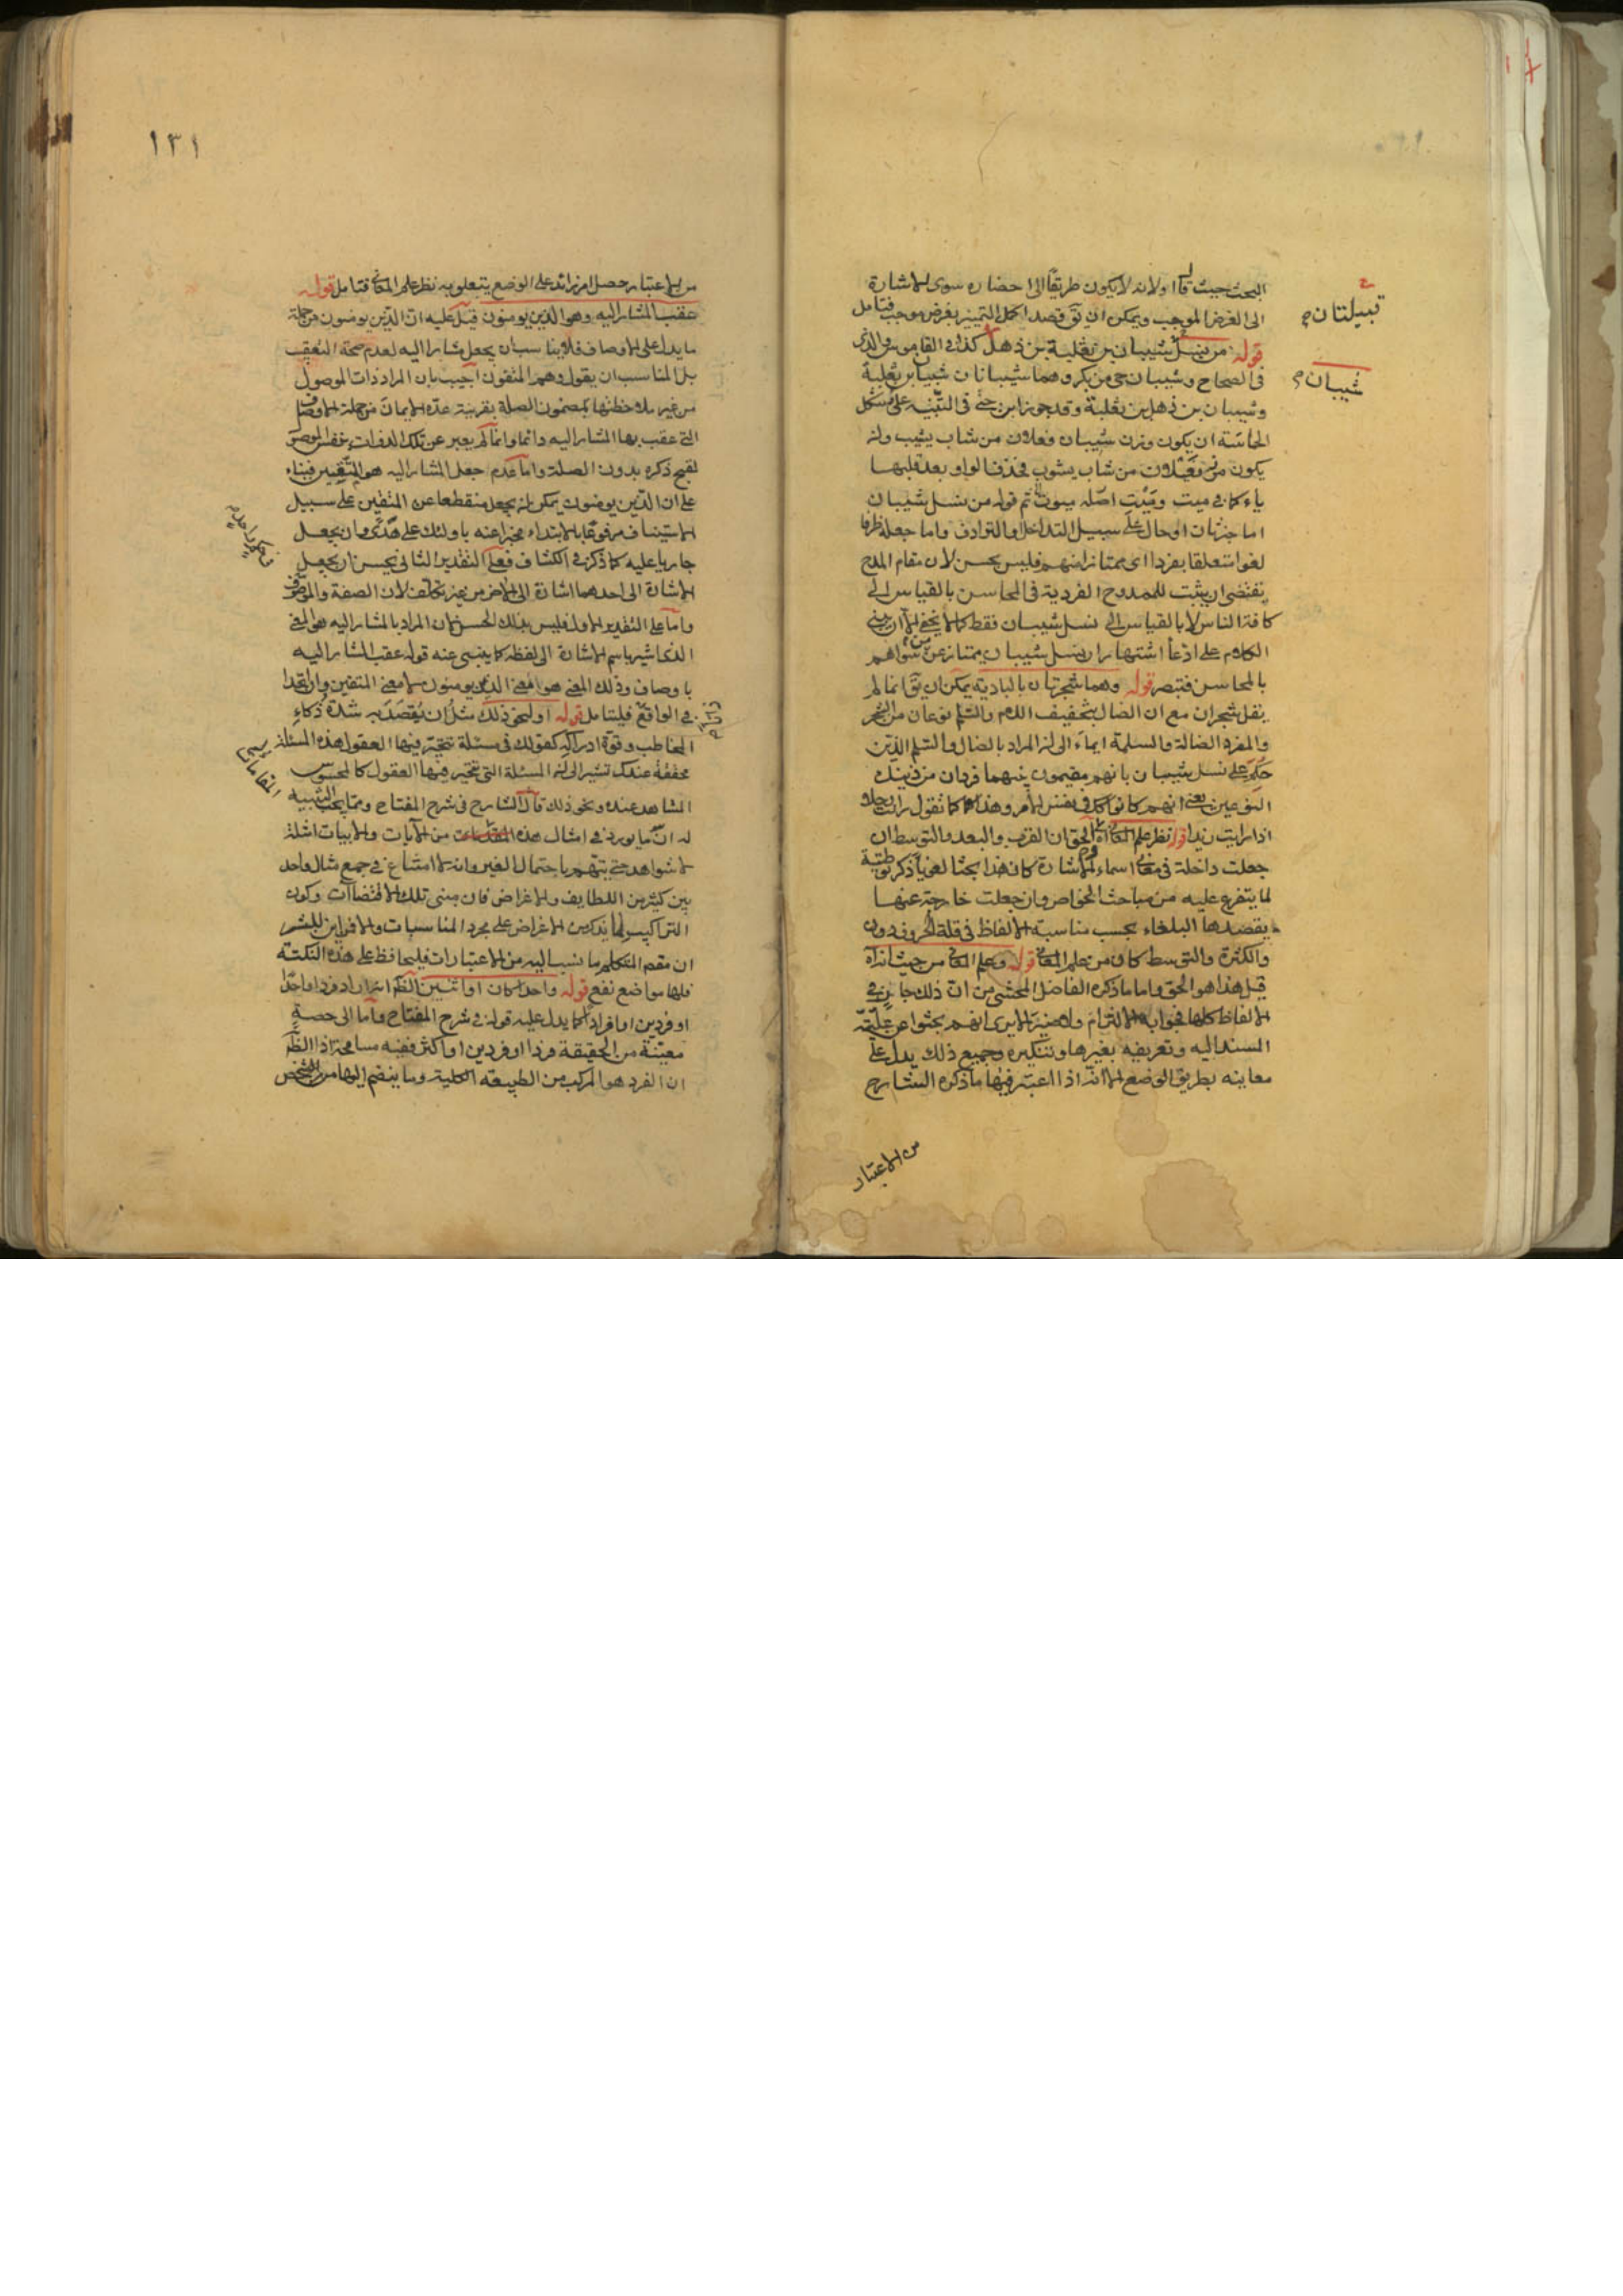 البحث حيث قال اولانه لا يكون طريقا الى احضاره سوى الاشارة
الى الغرض الموجب ويمكن ان يق قصد اكمل التمييز بغرض موجب فتامل
قوله من نسل شيبان بن ثعلبة بن ذهل كذا في القاموس والذي
في الصحاح وشيبان حي من بكر وهما شيبانان شيبان بن ثعلبة
وشيبان بن ذهل بن ثعلبة وقد جوز ابن جني في التنبيه على مشكل
الحماسة ان يكون وزن شيبان فعلان من شاب يشيب وان
يكون من فيعلان من شاب يشوب فحذف الواو بعد قلبها
ياء كما في ميت وميت اصله ميوت ثم قوله من نسل شيبان
اما خبر ثان او حال على سبيل التداخل او الترادف واما جعله ظرفا
لغوا متعلقا بفردا اى ممتازا منهم فليس بحسن لان مقام المدح
يقتضى ان يثبت للممدوح الفردية في المحاسن بالقياس الى
كافة الناس لا بالقياس الى نسل شيبان فقط كما لا يخفى الا ان يبنى
الكلام على ادعا اشتهار ان نسل شيبان ممتاز عن سواهم
بالمحاسن فتبصر قوله وهما شجرتان بالبادية يمكن ان يق انما لم
يقل شجران مع ان الضال بتخفيف اللام والسلم نوعان من الشجر
والمفرد الضالة والسلمة ايماء الى ان المراد بالضال والسلم الذين
حكم على نسل شيبان بانهم مقيمون بينهما فردان من ذينك
النوعين يعنى انهم كانوا كذا في نفس الامر وهذا كما تقول رايت رجلا
اذا رايت زيدا قوله نظر علم المعاني اه الحق ان القرب والبعد والتوسط ان
جعلت داخلة في معاني اسماء الاشارة كان هذا بحثا لغويا ذكر توطئة
لما يتفرع عليه من مباحث الخواص وان جعلت خارجة عنها
يقصدها البلغاء بحسب مناسبة الالفاظ في قلة الحروف دون
والكثرة والتوسط كان من علم المعاني قوله وعلم المعاني من حيث انه اه
قيل هذا هو الحق واما ما ذكره الفاضل المحشي من ان ذلك جار في
الالفاظ كلها فجوابه الالتزام ولا ضير الا يرى انهم بحثوا عن علمية
المسند اليه وتعريفه بغيرها وتنكيره وجميع ذلك يدل على
معانيه بطريق الوضع الا انه اذا اعتبر فيها ما ذكره الشارح
من الاعتبار
قبيلتان
شيبان
١٣١
من الاعتبار حصل امر زائد على الوضع يتعلق به نظر علم المعاني فتامل قوله
عقب المشار اليه وهو الذين يومنون قيل عليه ان الذين يومنون من جملة
ما يدل على الاوصاف فلا يناسب ان يجعل مشارا اليه لعدم صحة التعقيب
بل المناسب ان يقول وهم المتقون اجيب بان المراد ذات الموصول
من غير ملاحظتها بمضمون الصلة بقرينة عده الايمان من جملة الاوصاف
التي عقب بها المشار اليه دائما وانما لم يعبر عن تلك الذوات بنفس الموصول
لقبح ذكره بدون الصلة واما عدم جعل المشار اليه هو المتقين فبناء
على ان الذين يومنون يمكن ان يجعل منقطعا عن المتقين على سبيل
الاستيناف مرفوعا بالابتداء مخبرا عنه باولئك على هدى وان يجعل
جاريا عليه كما ذكر في الكشاف فعلى التقدير الثاني يحسن ان يجعل
الاشارة الى احدهما اشارة الى الاخر من غير تكلف لان الصفة والموصوف
واما على التقدير الاول فليس بذلك الحسن لان المراد بالمشار اليه هو المعنى
الذى اشير باسم الاشارة الى لفظه كما ينبئ عنه قوله عقب المشار اليه
باوصاف وذلك المعنى هو معنى الذين يومنون لا معنى المتقين وان اتحدا
في الواقع فليتامل قوله اولنحو ذلك مثل ان يقصد به شدة ذكاء
المخاطب وقوة ادراكه كقولك في مسئلة تتحير فيها العقول هذه المسئلة
محققة عندك تشير الى ان المسئلة التي تتحير فيها العقول كالمحسوس
المشاهد عنده ونحو ذلك قال الشارح في شرح المفتاح ومما يجب التنبيه
له ان ما يورد في امثال هذه المقامات من الآيات والابيات امثلة
لا شواهد حتى يتهم باحتمال الغير وانه لا امتناع في جمع مثال واحد
بين كثير من اللطايف والاغراض فان مبنى تلك الاقتضاآت وكون
التراكيب لما يذكر من الاغراض على مجرد المناسبات والا فمن اين للبشر
ان مقصد المتكلم ما نسب اليه من الاعتبارات فليحافظ على هذه النكتة
فلها مواضع نفع قوله واحدا كان او اثنين الظ انه اراد فردا واحدا
او فردين او افرادا كما يدل عليه قوله في شرح المفتاح واما الى حصة
معينة من الحقيقة فردا او فردين او اكثر ففيه مسامحة اذ الظ
ان الفرد هو المركب من الطبيعة الكلية وما ينضم اليها من التشخص
المقامات